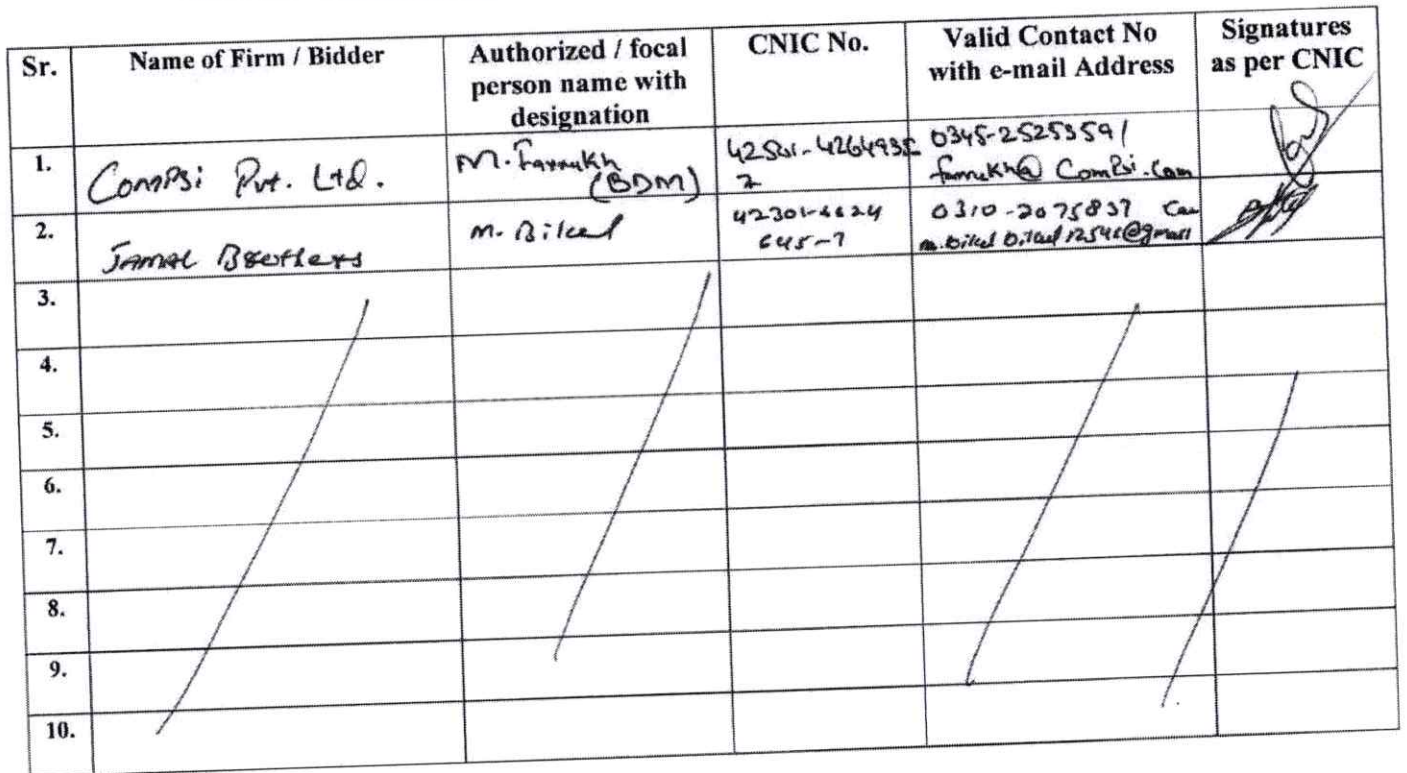 Sr. Name of Firm / Bidder Authorized / focal person name with designation CNIC No. Valid Contact No with e-mail Address Signatures as per CNIC
1. ComPSi Pvt. Ltd. M. Farrukh (BDM) 0345-2525359/ farrukh@ComPSi.Com
2. JAMAL Brothers M. Bilal 0310-2075837
3.
4.
5.
6.
7.
8.
9.
10.